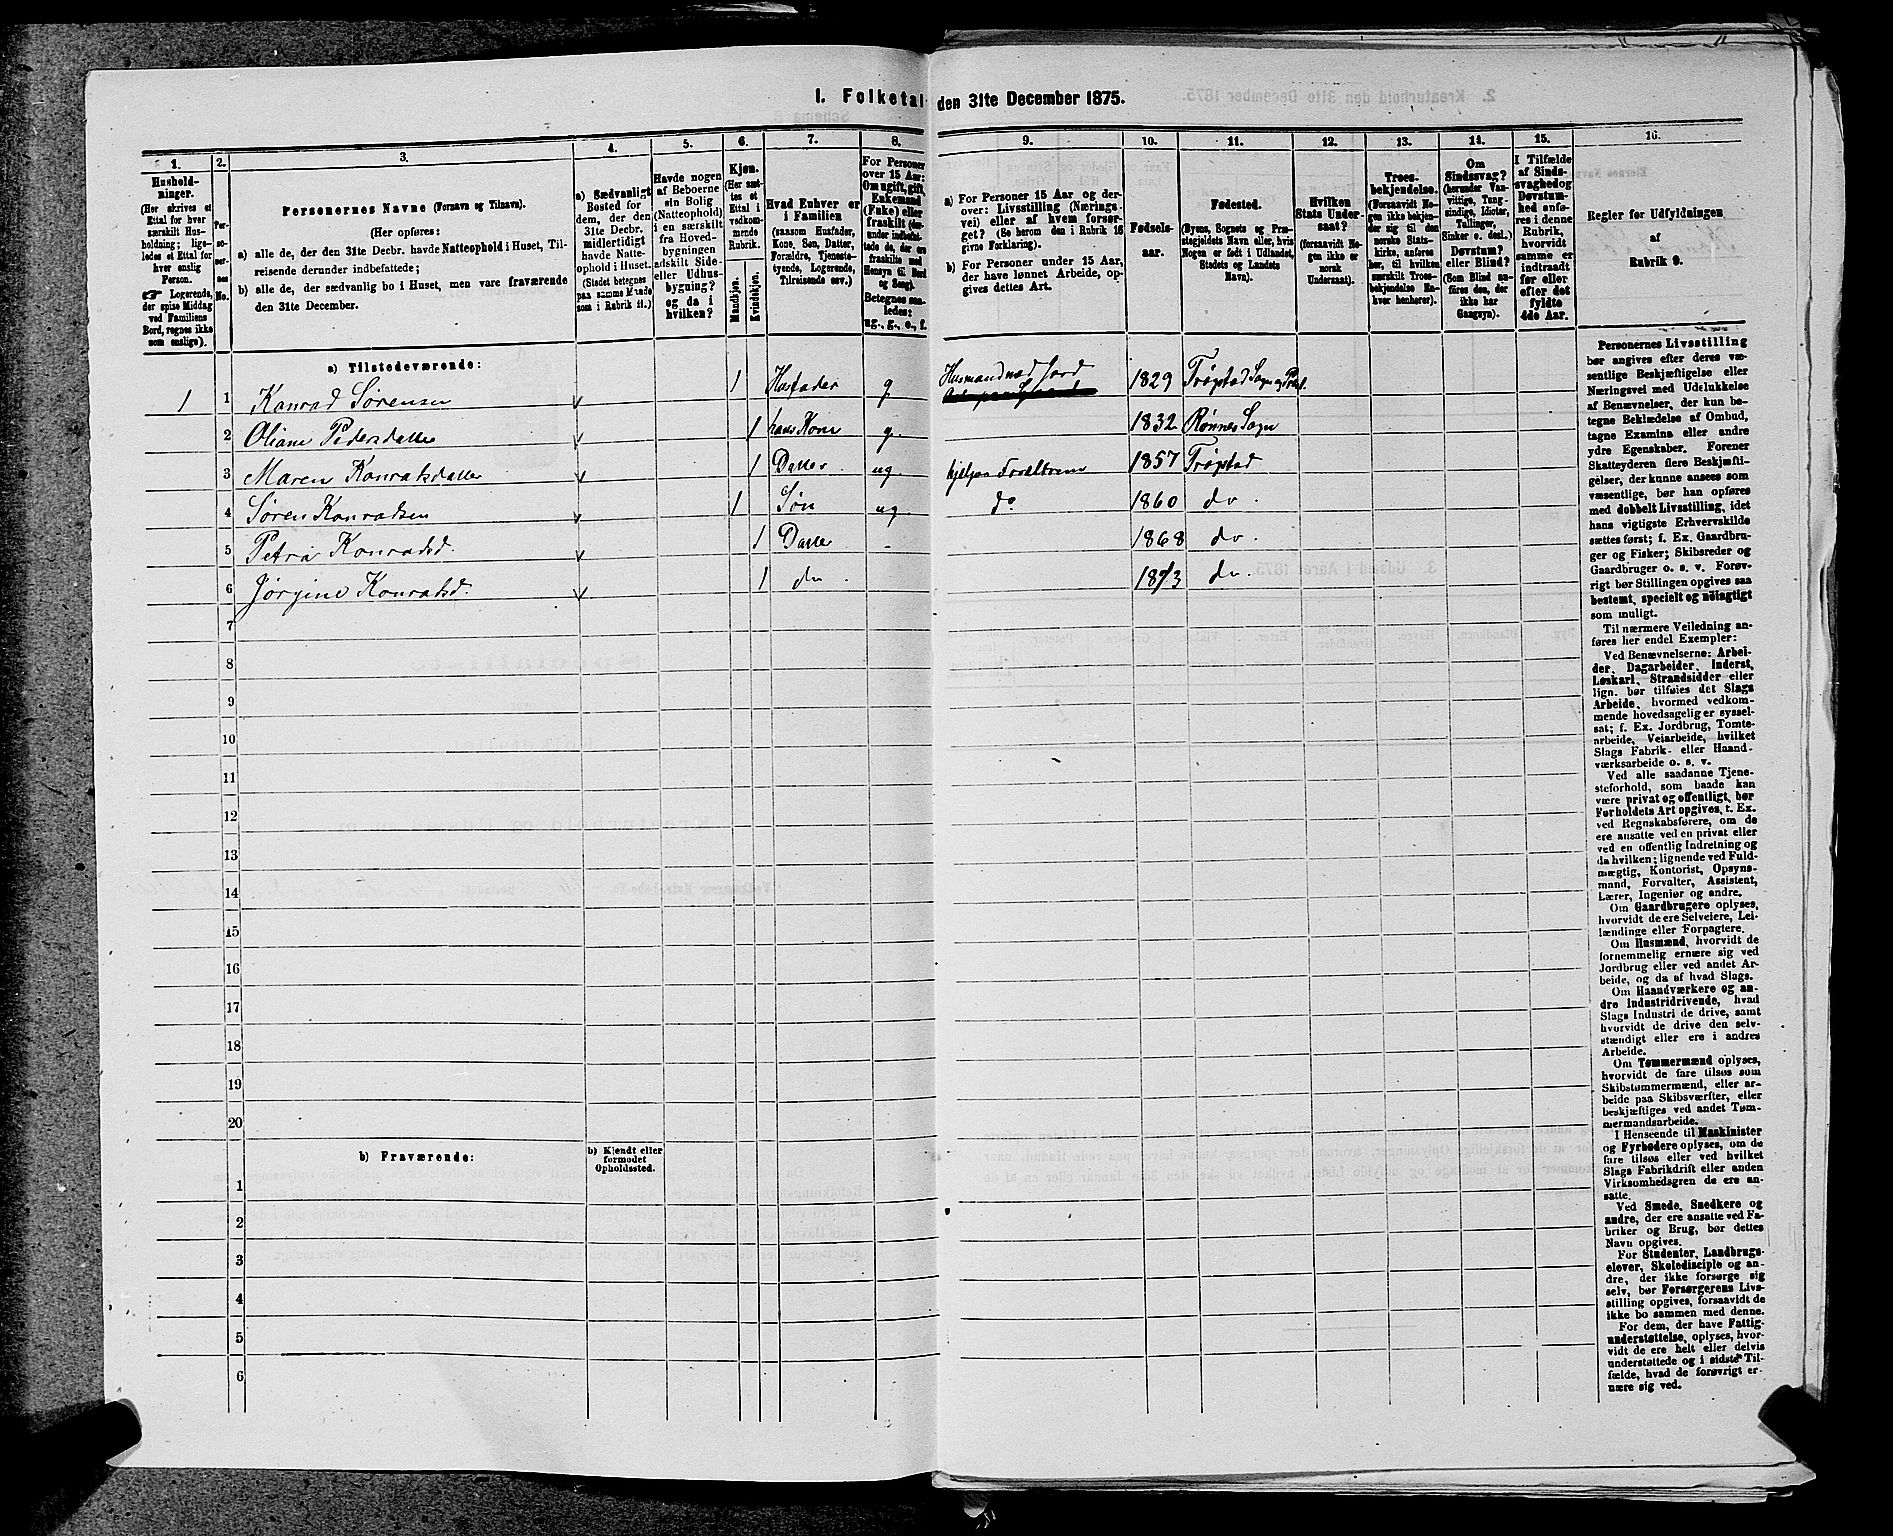 I. Folketal den 31te December 1875.
1. 2. 3. 4. 5. 6. 7. 8. 9. 10. 11. 12. 13. 14. 15. 16.
Hushold-
ninger.
(Her skrives et
Ettal for hver
særskilt Hus-
holdning; lige-
ledes et Ettal for
hver enslig
Person.
☞ Logerende,
der spise Middag
ved Familiens
Bord, regnes ikke
som enslige).
Per-
so-
ner-
nes
No.
Personernes Navne (Fornavn og Tilnavn).
(Her opføres:
a) alle de, der den 31te Decbr. havde Natteophold i Huset, Til-
reisende derunder indbefattede;
b) alle de, der sædvanlig bo i Huset, men vare fraværende
den 31te December.
a) Sædvanligt
Bosted for
dem, der den
31te Decbr.
midlertidigt
havde Natte-
ophold i Huset.
(Stedet betegnes
paa samme Maade
som i Rubrik 11.)
Havde nogen
af Beboerne
sin Bolig
(Natteophold)
i en særskilt
fra Hoved-
bygningen
adskilt Side-
eller Udhus-
bygning?
og da i
hvilken?
Kjøn.
(Her sæt-
tes et
Ettal i
vedkom-
mende
Rubrik.
Mandkjøn.
Kvindekjøn.
Hvad Enhver er
i Familien
(saasom Husfader,
Kone, Søn, Datter,
Forældre, Tjeneste-
tyende, Logerende,
Tilreisende osv.)
For Personer
over 15 Aar:
Om ugift, gift,
Enkemand
(Enke) eller
fraskilt (her-
under indbefat-
tede de, der ere
fraskilte med
Hensyn til Bord
og Seng).
Betegnes saa-
ledes:
ug., g., e., f.
a) For Personer 15 Aar og der-
over: Livsstilling (Nærings-
vei) eller af hvem forsør-
get? (Se herom den i Rubrik 16
givne Forklaring).
b) For Personer under 15 Aar,
der have lønnet Arbeide, op-
gives dettes Art.
Fødsels-
aar.
Fødested.
(Byens, Sognets og Præ-
stegjeldets Navn eller, hvis
Nogen er født i Udlandet,
Stedets og Landets
Navn).
Hvilken
Stats Under-
saat?
(forsaavidt No-
gen ikke er
norsk
Undersaat).
Troes-
bekjendelse.
(Forsaavidt No-
gen ikke bekjen-
der sig til den
norske Stats-
kirke, anføres
her, til hvilken
særskilt Troes-
bekjendelse En-
hver henhører).
Om
Sindssvag?
(herunder Van-
vittige, Tung-
sindige, Idioter,
Tullinger,
Sinker o. desl.)
Døvstum?
eller Blind?
(Som Blind an-
føres den, der
ikke har
Gangsyn).
I Tilfælde
af Sinds-
svaghed og
Døvstum-
hed anfø-
res i denne
Rubrik,
hvorvidt
samme er
indtraadt
før eller
efter det
fyldte
4de Aar.
Regler for Udfyldningen
af
Rubrik 9.
a) Tilstedeværende:
1 1 Konrad Sørensen 1 Husfader g Husmand med Jord 1829 Trøgstad Sogn og
2 Oliane Pedersdatter 1 hans Kone g. 1832 Rønnes Sogn
3 Maren Konradsdatter 1 Datter ug. hjelper Forældrene 1857 Trøgstad
4 Søren Konradsen 1 Søn ug. do 1860 do.
5 Petra Konradsd. 1 Datter - 1868 do.
6 Jørgine Konradsd. 1 do. 1873 do.
7
8
9
10
11
12
13
14
15
16
17
18
19
20
b) Fraværende:
b) Kjendt eller
formodet
Opholdssted.
1
2
3
4
5
6
Personernes Livsstilling
bør angives efter deres væ-
sentlige Beskjæftigelse eller
Næringsvei med Udelukkelse
af Benævnelser, der kun be-
tegne Beklædelse af Ombud,
tagne Examina eller andre
ydre Egenskaber. Forener
Skatteyderen flere Beskjæfti-
gelser, der kunne ansees som
væsentlige, bør han opføres
med dobbelt Livsstilling, idet
hans vigtigste Erhvervskilde
sættes først; f. Ex. Gaardbru-
ger og Fisker; Skibsreder og
Gaardbruger o. s. v. Forøv-
rigt bør Stillingen opgives saa
bestemt, specielt og nøiagtigt
som muligt.
Til nærmere Veiledning an-
føres her endel Exempler:
Ved Benævnelserne: Arbei-
der, Dagarbeider, Inderst,
Løskarl, Strandsidder eller
lign. bør tilføies det Slags
Arbeide, hvormed vedkom-
mende hovedsagelig er syssel-
sat; f. Ex. Jordbrug, Tomte-
arbeide, Veiarbeide, hvilket
Slags Fabrik- eller Haand-
værksarbeide o. s. v.
Ved alle saadanne Tjene-
steforhold, som baade kan
være privat og offentligt, bør
Forholdets Art opgives, t. Ex.
ved Regnskabsførere, om de
ere ansatte ved en privat eller
ved en offentlig Indretning og
da hvilken; lignende ved Fuld-
mægtig, Kontorist, Opsyns-
mand, Forvalter, Assistent,
Lærer, Ingeniør og andre.
Om Gaardbrugere oplyses,
hvorvidt de ere Selveiere, Lei-
lændinge eller Forpagtere.
Om Husmænd, hvorvidt de
fornemmelig ernære sig ved
Jordbrug eller ved andet Ar-
beide, og da af hvad Slags.
Om Haandværkere og an-
dre Industridrivende, hvad
Slags Industri de drive, samt
hvorvidt de drive den selv-
stændigt eller ere i andres
Arbeide.
Om Tømmermænd oplyses,
hvorvidt de fare tilsøs som
Skibstømmermænd, eller ar-
beide paa Skibsværfter, eller
beskjæftiges ved andet Tøm-
mermandsarbeide.
I Henseende til Maskinister
og Fyrbødere oplyses, om de
fare tilsøs eller ved hvilket
Slags Fabrikdrift eller anden
Virksomhedsgren de ere an-
satte.
Ved Smede, Snedkere og
andre, der ere ansatte ved Fa-
briker og Brug, bør dettes
Navn opgives.
For Studenter, Landbrugs-
elever, Skoledisciple og an-
dre, der ikke forsørge sig
selv, bør Forsørgerens Livs-
stilling opgives, forsaavidt de
ikke bo sammen med denne.
For dem, der have Fattig-
understøttelse, oplyses, hvor-
vidt de ere helt eller delvis
understøttede og i sidste Til-
fælde, hvad de forøvrigt er-
nære sig ved.